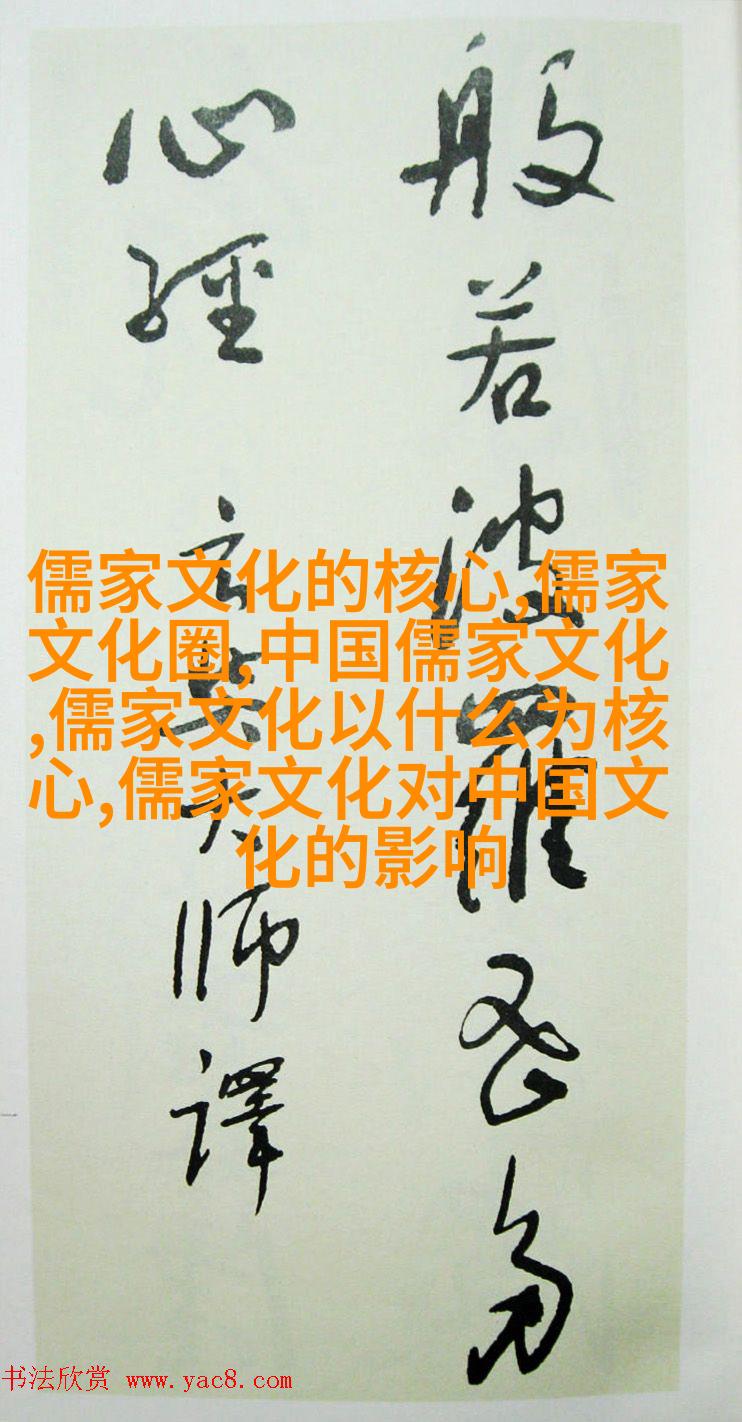 般若波羅蜜多
心經 玄奘大師譯
儒家文化的核心,儒家
文化圈,中国儒家文化
,儒家文化以什么为核
心,儒家文化对中国文
化的影响
书法欣赏 www.yac8.com